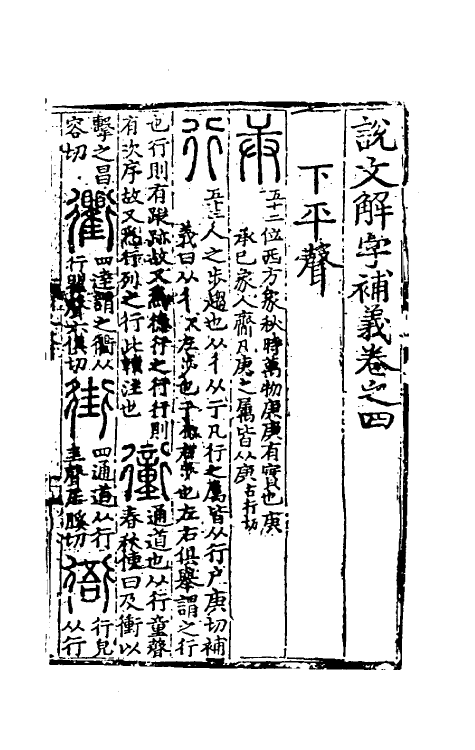 說文解字補義卷之四
下平聲
庚 五十二 位西方象秋時萬物庚庚有實也庚
承已象人齋凡庚之屬皆从庚古行切
行 五十三 人之步趨也从彳从亍凡行之屬皆从行户庚切補
義曰从彳左步也亍右步也左右俱舉謂之行
也行則有蹤跡故又為德行之行行則
有次序故又為行列之行此轉注也
衝 通道也从行童聲
春秋傳曰及衝以
擊之昌
容切
衢 四達謂之衢从
行瞿聲其俱切
街 四通道从行
圭聲古膎切
衙 行皃
从行